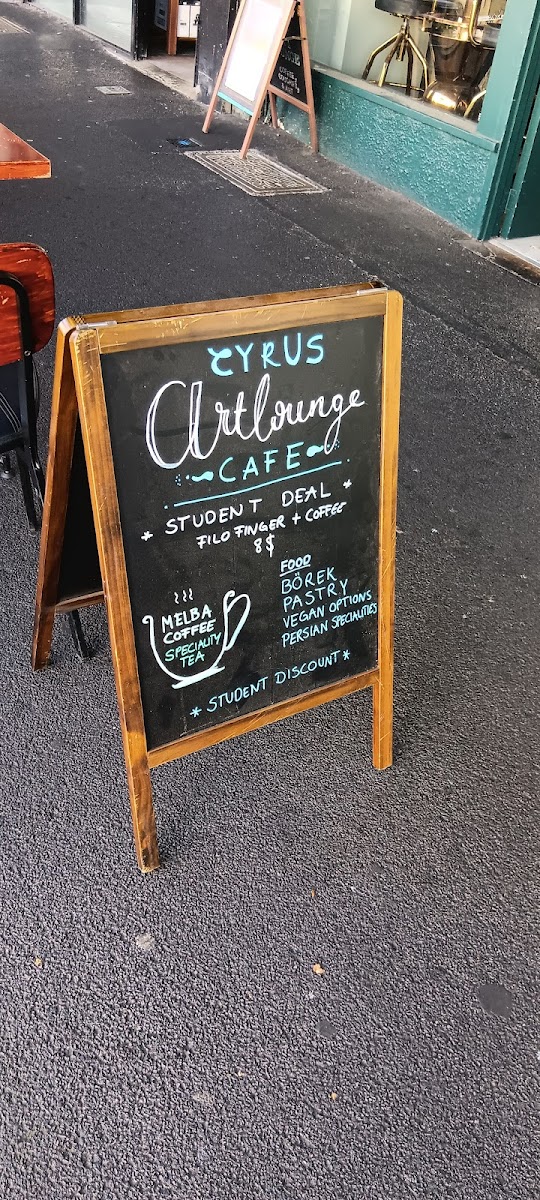 CYRUS
Artlounge
CAFE
* STUDENT DEAL *
FILO FINGER + COFFEE
8$
FOOD
BÖREK
PASTRY
VEGAN OPTIONS
PERSIAN SPECIALITIES
MELBA
COFFEE
SPECIALITY
TEA
* STUDENT DISCOUNT *